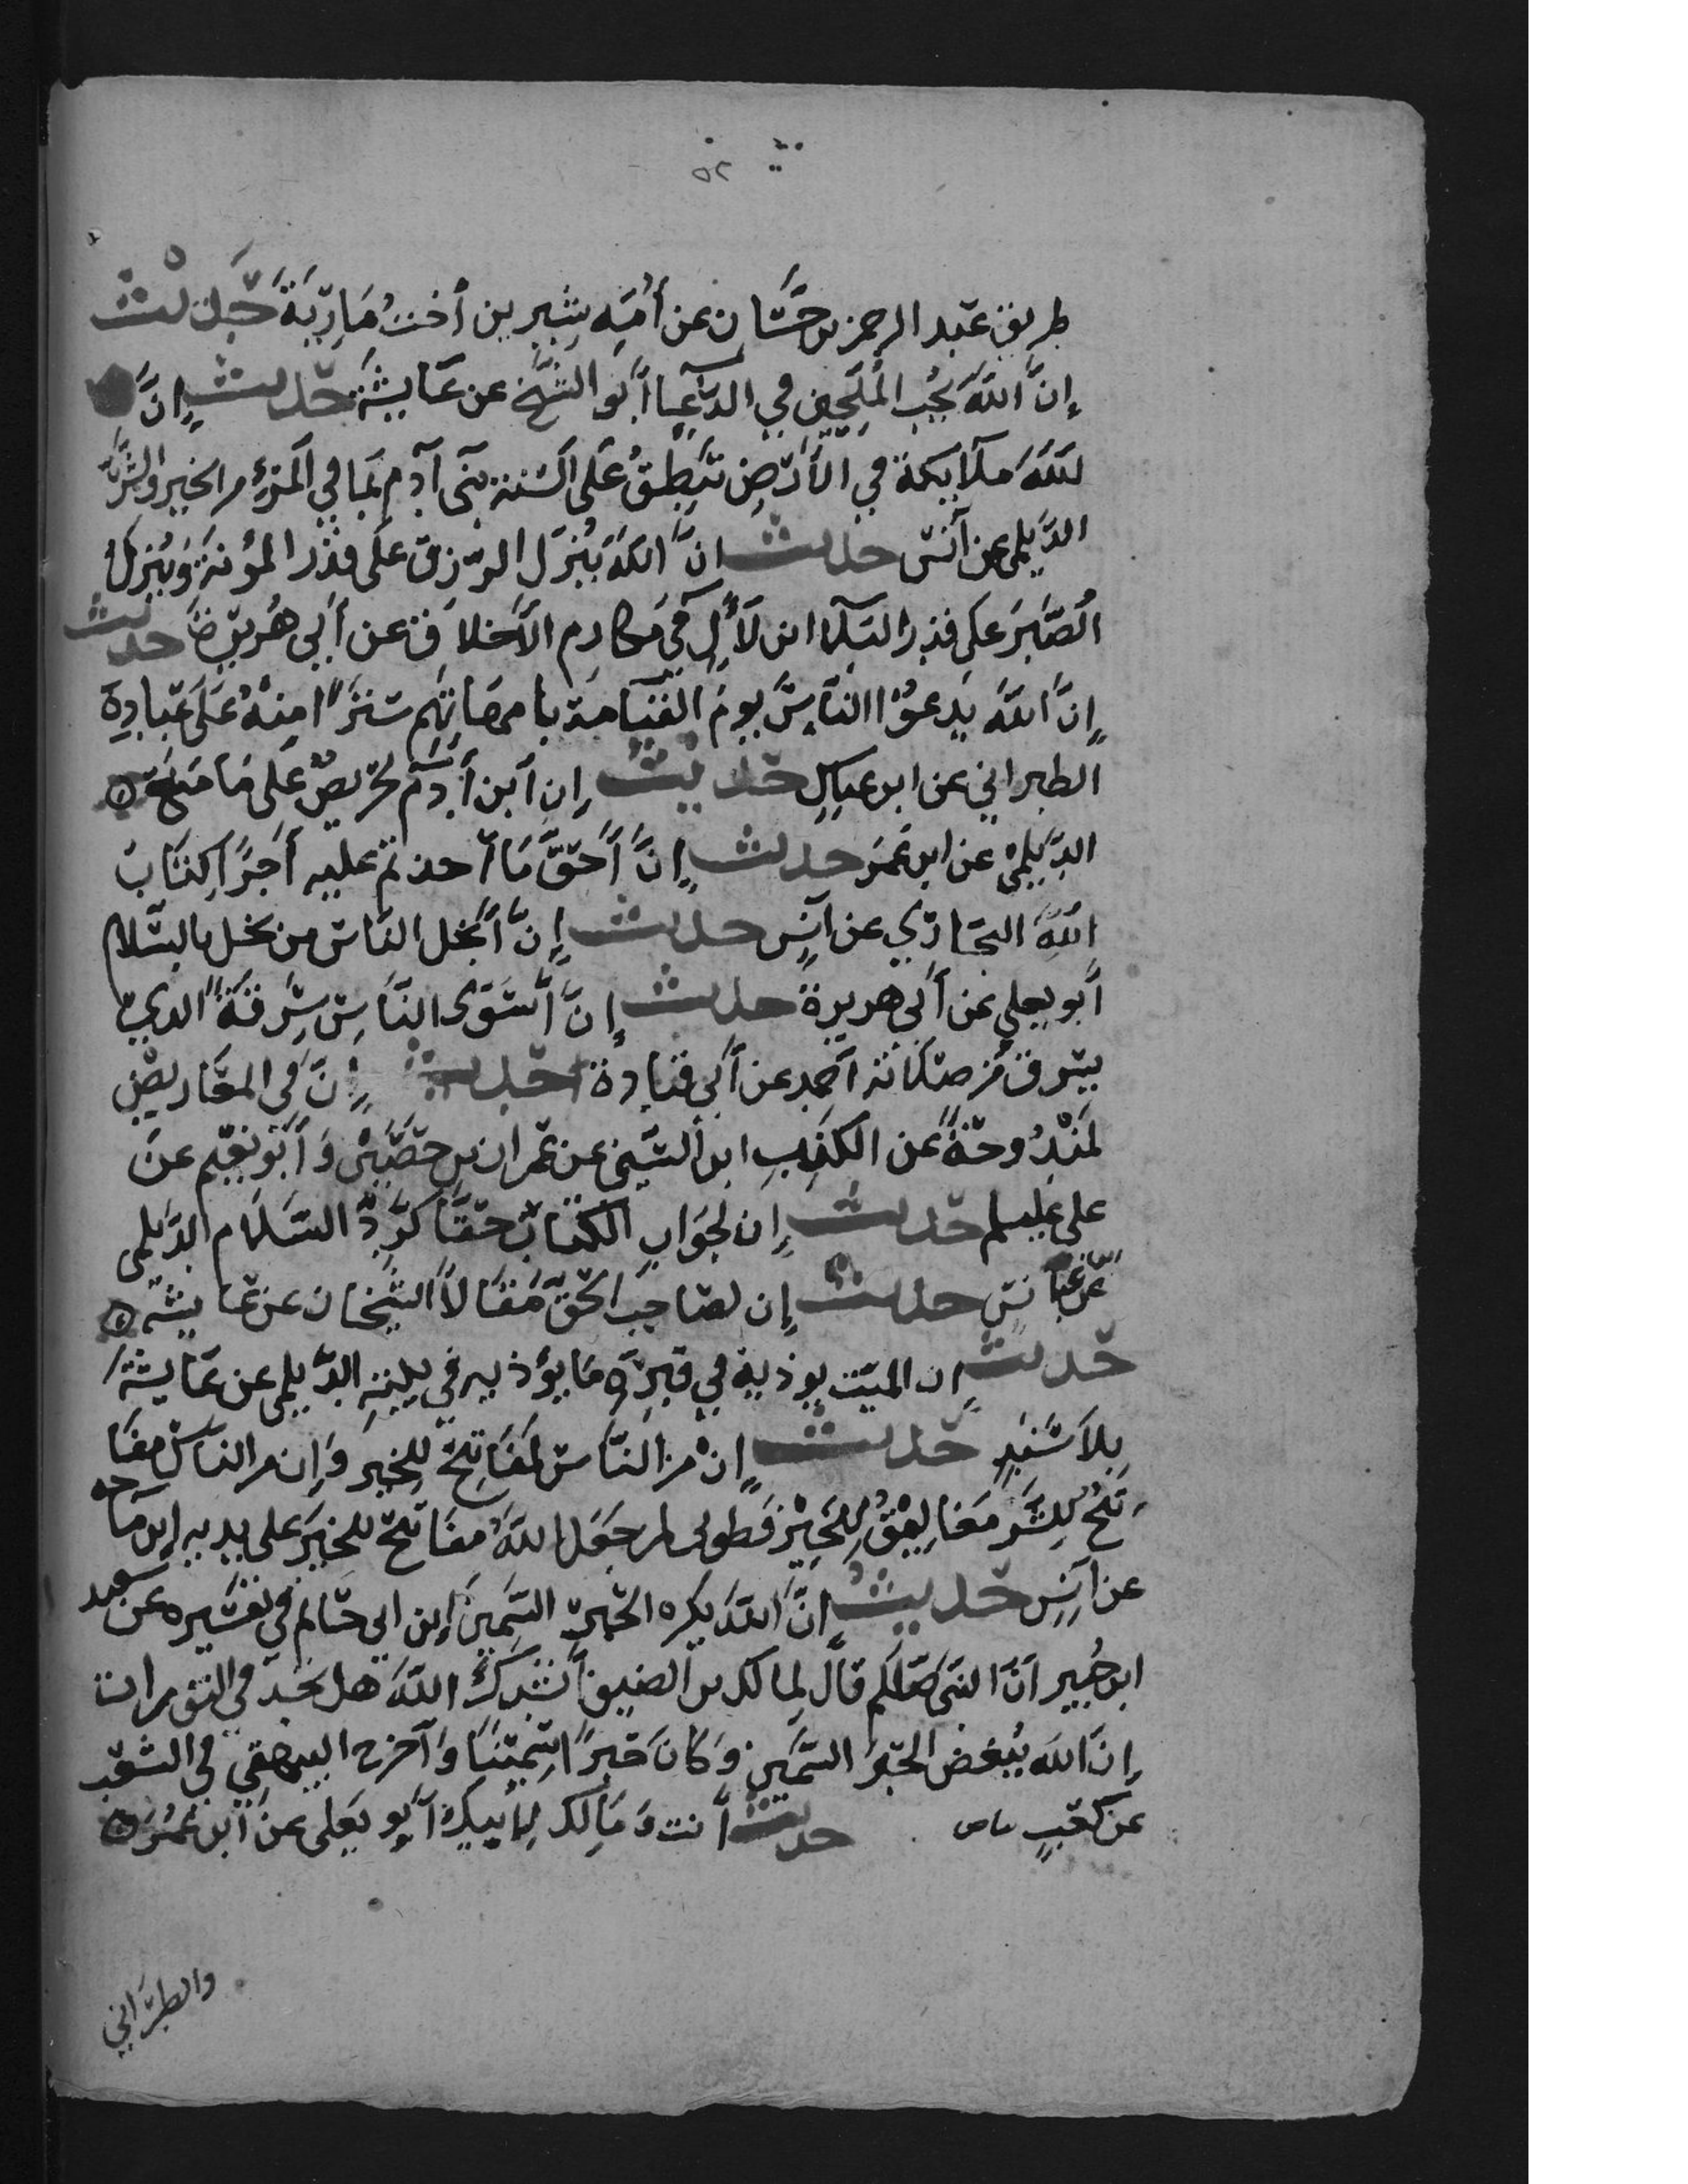 ٥٢
طريق عبد الرحمن بن حسان عن أمه شيرين أخت مارية حديث
إن الله يحب الملحين في الدعا أبو الشيخ عن عايشة حديث إن
لله ملايكة في الأرض تنطق على السنة بني آدم بما في المرء من الخير والشر
الديلمي عن أنس حديث ان الله ينزل الرزق على قدر المؤنة وينزل
الصبر على قدر البلا ابن لأل في مكارم الأخلاق عن أبي هريرة حديث
إن الله يدعوا الناس يوم القيامة بامهاتهم سترا منه على عباده
الطبراني عن ابن عباس حديث إن أبن أدم لحريص على ما منع
الديلمي عن ابن عمر حديث إن أحق ما أخذتم عليه أجرا كتاب
الله البخاري عن أنس حديث إن أبخل الناس من بخل بالسلام
أبو يعلي عن أبي هريرة حديث إن أسوى الناس سرقة الذي
يسرق من صلاته أحمد عن أبي قتادة حديث إن في المعاريض
لمندوحة عن الكذب ابن السني عن عمران بن حصين وأبو نعيم عن
على عليسلم حديث إن لجواب الكتاب حقا كرد السلام الديلمي
عن أنس حديث إن لصاحب الحق مقالا الشيخان عن عايشة
حديث إن الميت يوذيه في قبره ما يؤذيه في بيته الديلمي عن عايشة
بلا سند حديث إن من الناس لمفاتح للخير وإن من الناس مفا
تح للشر مغاليق للخير فطوبى لمن جعل الله مفاتح للخير على يديه ابن ماجه
عن أنس حديث إن الله يكره الحبر السمين ابن ابي حاتم في تفسيره عن سعيد
ابن جبير أن النبي صلعم قال لمالك بن الضيف أنشدك الله هل تجد في التورات
إن الله يبغض الحبر السمين وكان حبرا سمينا وأخرج البيهقي في الشعب
عن كعب حديث أنت ومالك لأبيك أبو يعلى عن ابن عمر
والطبراني